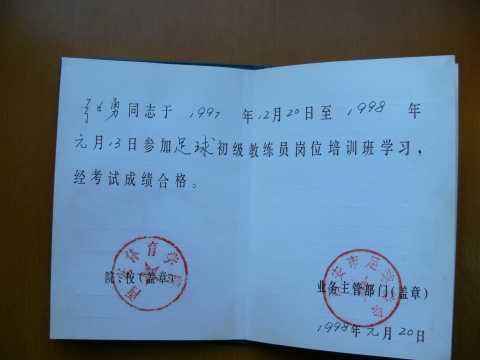 勇同志于 1997 年12月20日至 1998 年
元月13日参加足球初级教练员岗位培训班学习，
经考试成绩合格。
院、校（盖章）
西安体育学院
业务主管部门（盖章）
1998年元月20日